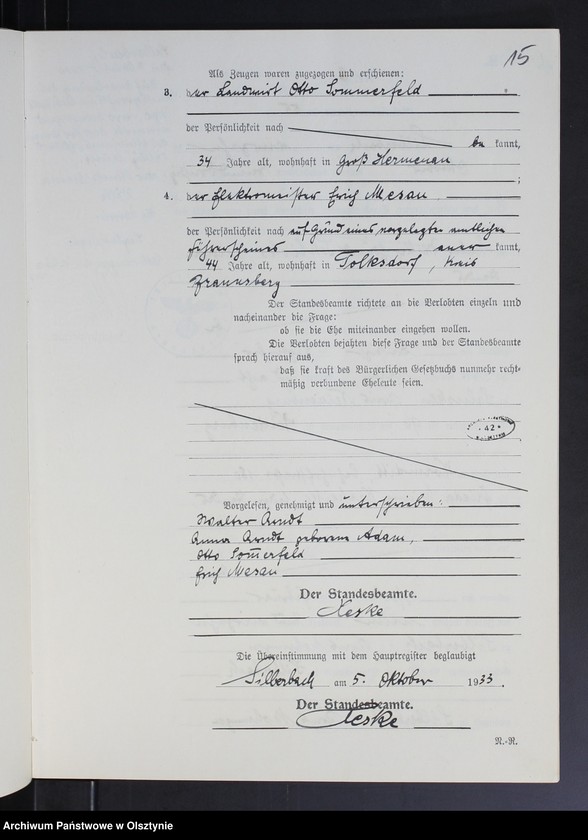 15
Als Zeugen waren zugezogen und erschienen:
3. der Landwirt Otto Sommerfeld
der Persönlichkeit nach
be kannt,
34 Jahre alt, wohnhaft in Groß Hermenau
;
4. der Elektromeister Erich Mesau
der Persönlichkeit nach auf Grund eines vorgelegten amtlichen
Führerscheines aner kannt,
44 Jahre alt, wohnhaft in Tolksdorf, Kreis
Braunsberg
Der Standesbeamte richtete an die Verlobten einzeln und
nacheinander die Frage:
ob sie die Ehe miteinander eingehen wollen.
Die Verlobten bejahten diese Frage und der Standesbeamte
sprach hierauf aus,
daß sie kraft des Bürgerlichen Gesetzbuchs nunmehr recht-
mäßig verbundene Eheleute seien.
42
Vorgelesen, genehmigt und unterschrieben:
Walter Arndt
Anna Arndt geborene Adam,
Otto Som̅erfeld
Erich Mesau
Der Standesbeamte.
Neske
Die Übereinstimmung mit dem Hauptregister beglaubigt
Silberbach am 5. Oktober 1933.
Der Standesbeamte.
Neske
N.-R.
Archiwum Państwowe w Olsztynie